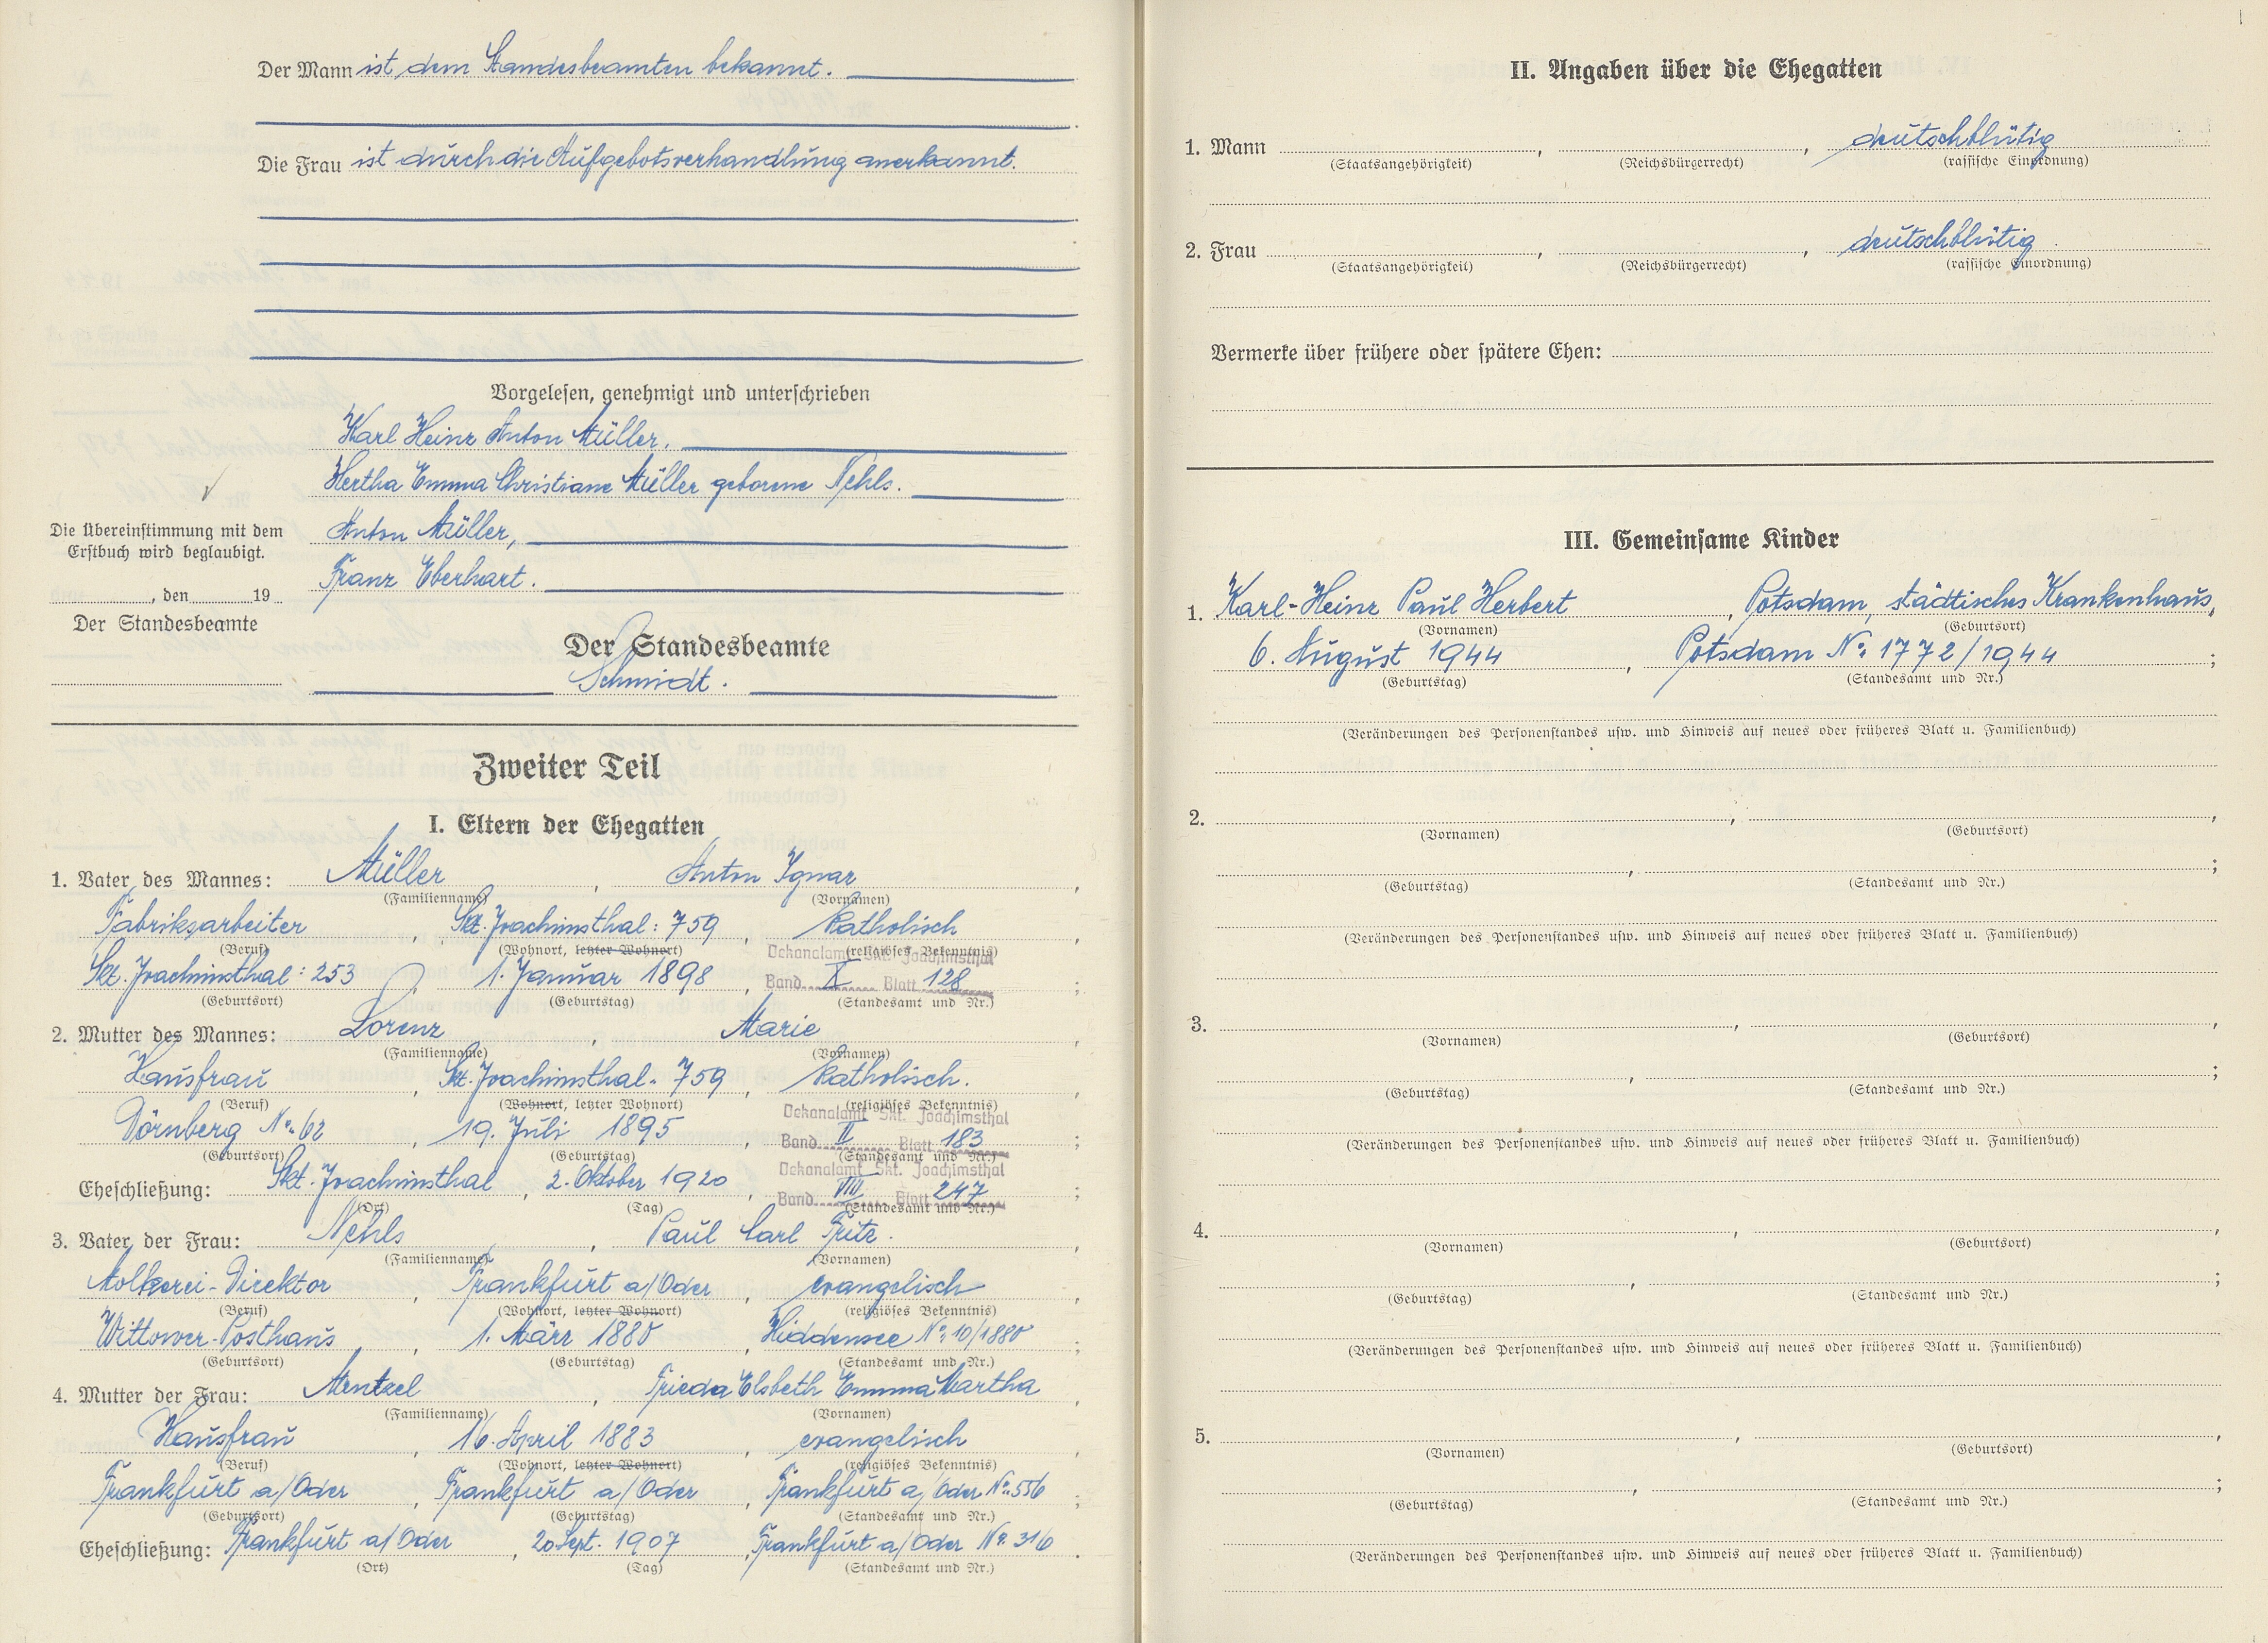 Der Mann ist dem Standesbeamten bekannt.
Die Frau ist durch die Aufgebotsverhandlung anerkannt.
Vorgelesen, genehmigt und unterschrieben
Karl Heinz Anton Müller,
Hertha Emma Christiane Müller geborene Nehls.
Anton Müller,
Franz Eberhart.
Die Übereinstimmung mit dem
Erstbuch wird beglaubigt.
, den 19
Der Standesbeamte
Der Standesbeamte
Schmidt.
Zweiter Teil
I. Eltern der Ehegatten
1. Vater des Mannes: Müller , Anton Ignaz ,
(Familienname) (Vornamen)
Fabriksarbeiter , Skt. Joachimsthal: 759 , katholisch ,
(Beruf) (Wohnort, letzter Wohnort) (religiöses Bekenntnis)
Dekanalamt Skt. Joachimsthal
Skt. Joachimsthal: 253 , 1. Januar 1898 , Band X Blatt 128 ;
(Geburtsort) (Geburtstag) (Standesamt und Nr.)
2. Mutter des Mannes: Lorenz , Marie ,
(Familienname) (Vornamen)
Hausfrau , Skt. Joachimsthal: 759 , katholisch. ,
(Beruf) (Wohnort, letzter Wohnort) (religiöses Bekenntnis)
Dekanalamt Skt. Joachimsthal
Dörnberg No. 62 , 19. Juli 1895 , Band II Blatt 183 ;
(Geburtsort) (Geburtstag) (Standesamt und Nr.)
Dekanalamt Skt. Joachimsthal
Eheschließung: Skt. Joachimsthal , 2. Oktober 1920 , Band VIII Blatt 247 ;
(Ort) (Tag) (Standesamt und Nr.)
3. Vater der Frau: Nehls , Paul Carl Fritz. ,
(Familienname) (Vornamen)
Molkerei-Direktor , Frankfurt a/Oder , evangelisch ,
(Beruf) (Wohnort, letzter Wohnort) (religiöses Bekenntnis)
Wittower-Posthaus , 1. März 1880 , Hiddensee No. 10/1880 ;
(Geburtsort) (Geburtstag) (Standesamt und Nr.)
4. Mutter der Frau: Mentzel , Frieda Elsbeth Emma Martha ,
(Familienname) (Vornamen)
Hausfrau , 16. April 1883 , evangelisch ,
(Beruf) (Wohnort, letzter Wohnort) (religiöses Bekenntnis)
Frankfurt a/Oder , Frankfurt a/Oder , Frankfurt a/Oder No. 556 ;
(Geburtsort) (Geburtstag) (Standesamt und Nr.)
Eheschließung: Frankfurt a/Oder , 20 Sept. 1907 , Frankfurt a/Oder No. 316 .
(Ort) (Tag) (Standesamt und Nr.)
II. Angaben über die Ehegatten
1. Mann , , deutschblütig
(Staatsangehörigkeit) (Reichsbürgerrecht) (rassische Einordnung)
2. Frau , , deutschblütig
(Staatsangehörigkeit) (Reichsbürgerrecht) (rassische Einordnung)
Vermerke über frühere oder spätere Ehen:
III. Gemeinsame Kinder
1. Karl-Heinz Paul Herbert , Potsdam, städtisches Krankenhaus,
(Vornamen) (Geburtsort)
6. August 1944 , Potsdam No. 1772/1944 ;
(Geburtstag) (Standesamt und Nr.)
(Veränderungen des Personenstandes usw. und Hinweis auf neues oder früheres Blatt u. Familienbuch)
2. , ,
(Vornamen) (Geburtsort)
, ;
(Geburtstag) (Standesamt und Nr.)
(Veränderungen des Personenstandes usw. und Hinweis auf neues oder früheres Blatt u. Familienbuch)
3. , ,
(Vornamen) (Geburtsort)
, ;
(Geburtstag) (Standesamt und Nr.)
(Veränderungen des Personenstandes usw. und Hinweis auf neues oder früheres Blatt u. Familienbuch)
4. , ,
(Vornamen) (Geburtsort)
, ;
(Geburtstag) (Standesamt und Nr.)
(Veränderungen des Personenstandes usw. und Hinweis auf neues oder früheres Blatt u. Familienbuch)
5. , ,
(Vornamen) (Geburtsort)
, ;
(Geburtstag) (Standesamt und Nr.)
(Veränderungen des Personenstandes usw. und Hinweis auf neues oder früheres Blatt u. Familienbuch)